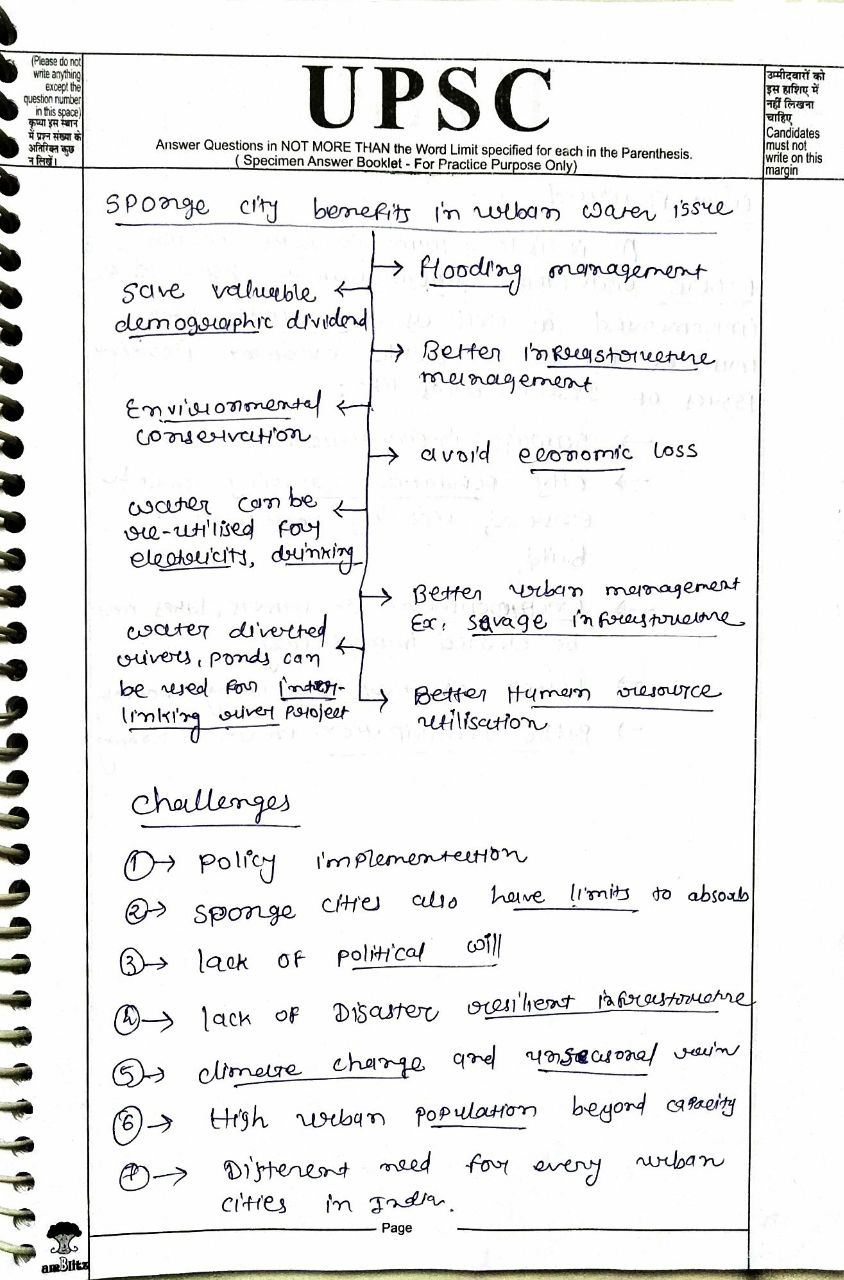 (Please do not
write anything
except the
question number
in this space)
कृप्या इस स्थान
में प्रश्न संख्या के
अतिरिक्त कुछ
न लिखें।
UPSC
Answer Questions in NOT MORE THAN the Word Limit specified for each in the Parenthesis.
( Specimen Answer Booklet - For Practice Purpose Only)
उम्मीदवारों को
इस हाशिए में
नहीं लिखना
चाहिए
Candidates
must not
write on this
margin
Sponge city benefits in urban water issue
→ flooding management
Save valuable ←
demographic dividend
→ Better infrastructure
management
Environmental ←
conservation
→ avoid economic loss
water can be ←
re-utilised for
electricity, drinking
→ Better urban management
Ex. Sewage infrastructure
water diverted ←
rivers, ponds can
be used for inter-
linking river project
→ Better Human resource
utilisation
Challenges
① → Policy implementation
② → Sponge cities also have limits to absorb
③ → lack of political will
④ → lack of Disaster resilient infrastructure
⑤ → climate change and unseasonal rain
⑥ → High urban population beyond capacity
⑦ → Different need for every urban
cities in India.
Page
amBlitz